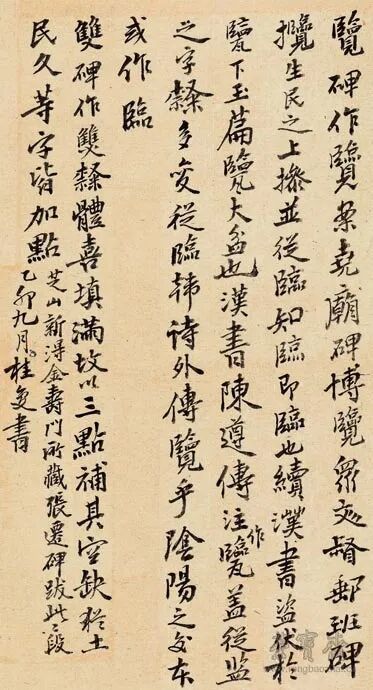 覽碑作覽案堯廟碑博覽眾文督郵班碑
攬生民之上操並從臨知臨即臨也續漢書盜伏於
下玉篇大盆也漢書陳遵傳注作蓋從監
之字隸多變從臨韓詩外傳覽乎陰陽之交本
或作臨
雙碑作雙隸體喜填滿故以三點補其空缺猶土
民久等字皆加點
芝山新得金壽門所藏張遷碑跋此二段
乙卯九月桂馥書